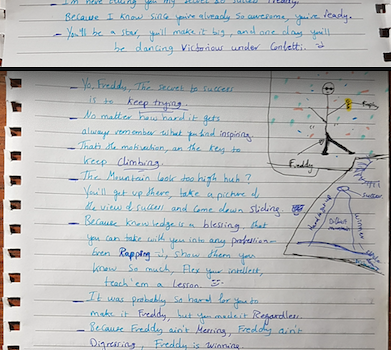 I'm telling you my secret to success Freddy,
Because I know since you're already so awesome, you're Ready.
- You'll be a Star, you'll make it big, and one day you'll
be dancing Victorious under Confetti.
- Yo, Freddy, The secret to success
is to Keep trying.
- No matter how hard it gets
always remember what you find inspiring.
- That's the motivation, an the Key to
keep Climbing.
- The Mountain look too high huh?
You'll get up there, take a picture of
the view of success and come down sliding.
- Because knowledge is a blessing that
you can take with you into any profession -
Even Rapping, show them you
know so much, Flex your intellect,
teach 'em a lesson.
- It was probably so hard for you to
make it Freddy, but you made it Regardless.
- Because Freddy ain't Messing, Freddy ain't
Digressing, Freddy is Winning.
Freddy
Success
Winner